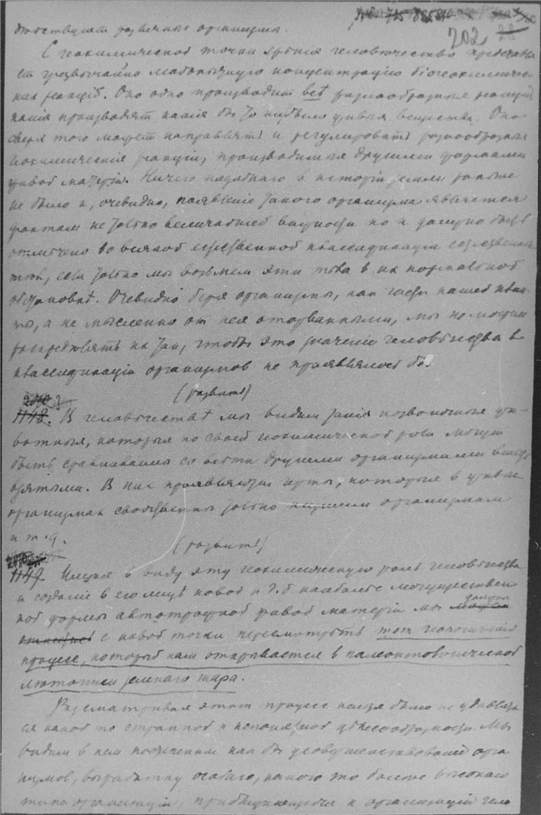 202
различные организмы.
С геохимической точки зрения человечество представля
ет чрезвычайно любопытную концентрацию биогеохимичес
ких реакций. Оно одно производит все разнообразные реакции
какие производят какия бы то ни было живыя вещества. Оно
сверх того может направлять и регулировать разнообразные
геохимическия реакции, производимыя другими формами
живой материи. Ничего подобнаго в истории земли раньше
не было и, очевидно, появление такого организма является
фактом не только величайшей важности но и должно быть
отмечено во всякой естественной классификации
если только мы возьмем эти тела в их нормальной
обстановке. Очевидно беря организмы, как части нашей плане
ты, а не мысленно от нея оторванными, мы не можем
так, чтобы это значение человечества в
классификации организмов не проявлялось бы.
(развить)
1148. В человечестве мы видим такия позвоночныя жи
вотныя, которыя по своей геохимической роли могут
быть сравниваемы со всеми другими организмами вместе
взятыми. В них проявляются черты, которые в живых
организмах свойственны только низшим организмам
и т.д.
(развить)
1149. Имея в виду эту геохимическую роль человечества
и создание в его лице новой и т.д. наиболее могуществен
ной формы автотрофной живой материи мы должны
с новой точки пересмотреть тот геологический
процесс, который нам открывается в палеонтологической
летописи земного шара.
Рассматривая этот процесс нельзя было не удивлять
ся какой то странной и непонятной целесообразности. Мы
видим в нем постепенным как бы усовершенствований орга
низмов, выработку особаго, какого то более высокаго
типа организации, приближающейся к организации чело